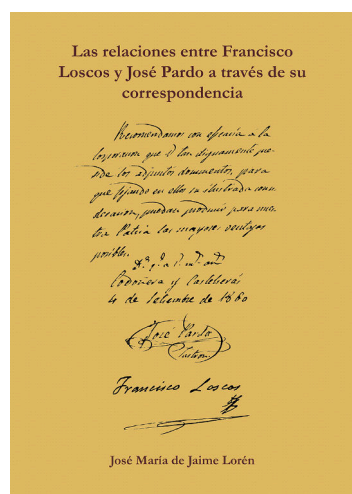 Las relaciones entre Francisco
Loscos y José Pardo a través de su
correspondencia
Recomendamos con eficacia a la
Corporacion que V tan dignamente pre-
side los adjuntos documentos, para
que fijando en ellos su ilustrada consi-
deracion, puedan producir para nues-
tra Patria las mayores ventajas
posibles.
Codoñera y Castelserás
4 de Setiembre de 1860
José Pardo
Sastrón
Francisco Loscos
José María de Jaime Lorén